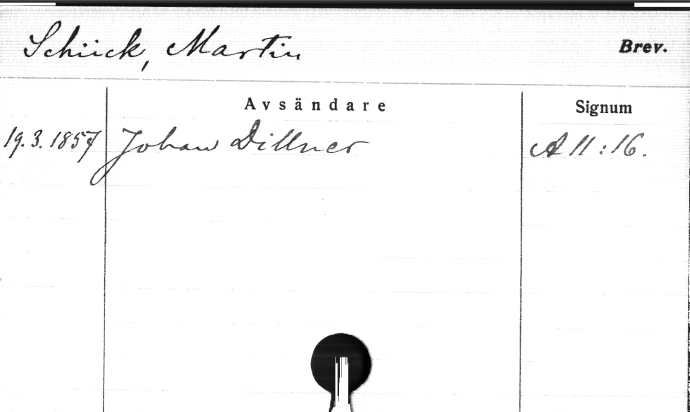 Schück, Martin
Brev.
Avsändare
Signum
19.3.1857 Johan Dillner A 11:16.